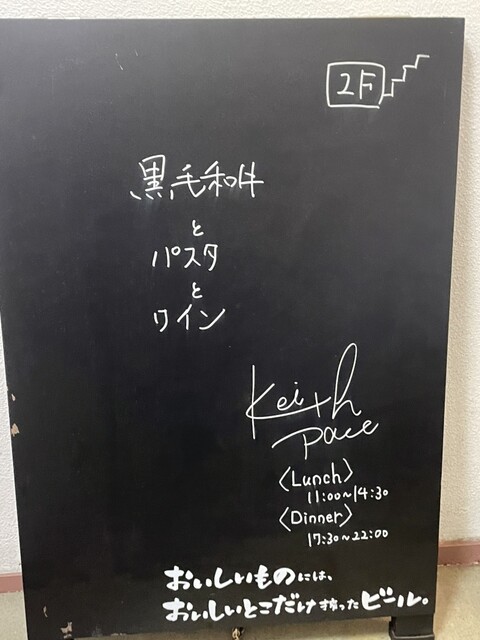 2F
黒毛和牛
と
パスタ
と
ワイン
Keith
pace
〈Lunch〉
11:00~14:30
〈Dinner〉
17:30~22:00
おいしいものには、
おいしいとこだけ搾ったビール。